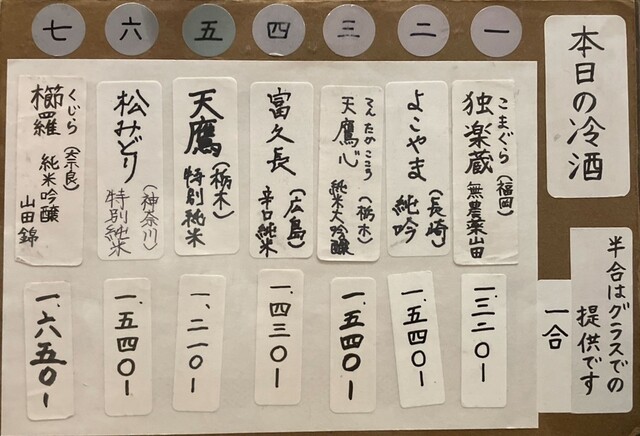 本日の冷酒
半合はグラスでの
提供です
一合
一
こまぐら
独楽蔵
(福岡)
無農薬山田
一.三二〇ー
二
よこやま
(長崎)
純吟
一.五四〇ー
三
てんたかこころ
天鷹心
(栃木)
純米大吟醸
一.五四〇ー
四
富久長
(広島)
辛口純米
一.四三〇ー
五
天鷹
(栃木)
特別純米
一.二一〇ー
六
松みどり
(神奈川)
特別純米
一.五四〇ー
七
くじら
櫛羅
(奈良)
純米吟醸
山田錦
一.六五〇ー